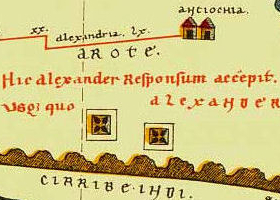 ANTIOCHIA,
XX. alexandria. lx.
AROTE.
Hic alexander Responsum accepit.
Usq; quo alexander
CIRRIBE·INDI.